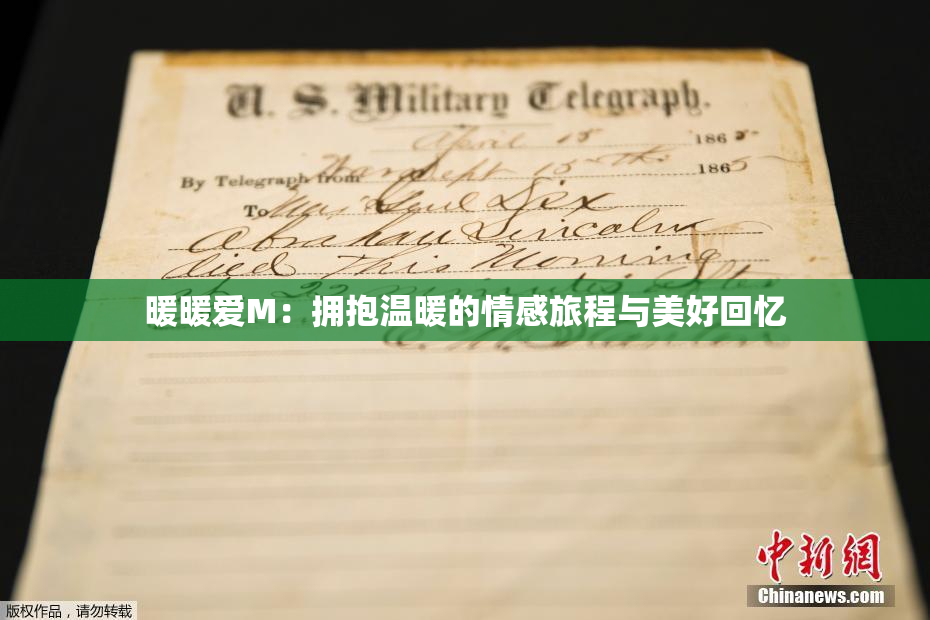 U. S. Military Telegraph.
April 15 1865
By Telegraph from War Dept 15th 1865
To Maj Genl Dix
Abraham Lincoln
died This Morning
at 22 minutes after
暖暖爱M：拥抱温暖的情感旅程与美好回忆
E. M. Stanton
中新网
Chinanews.com
版权作品，请勿转载